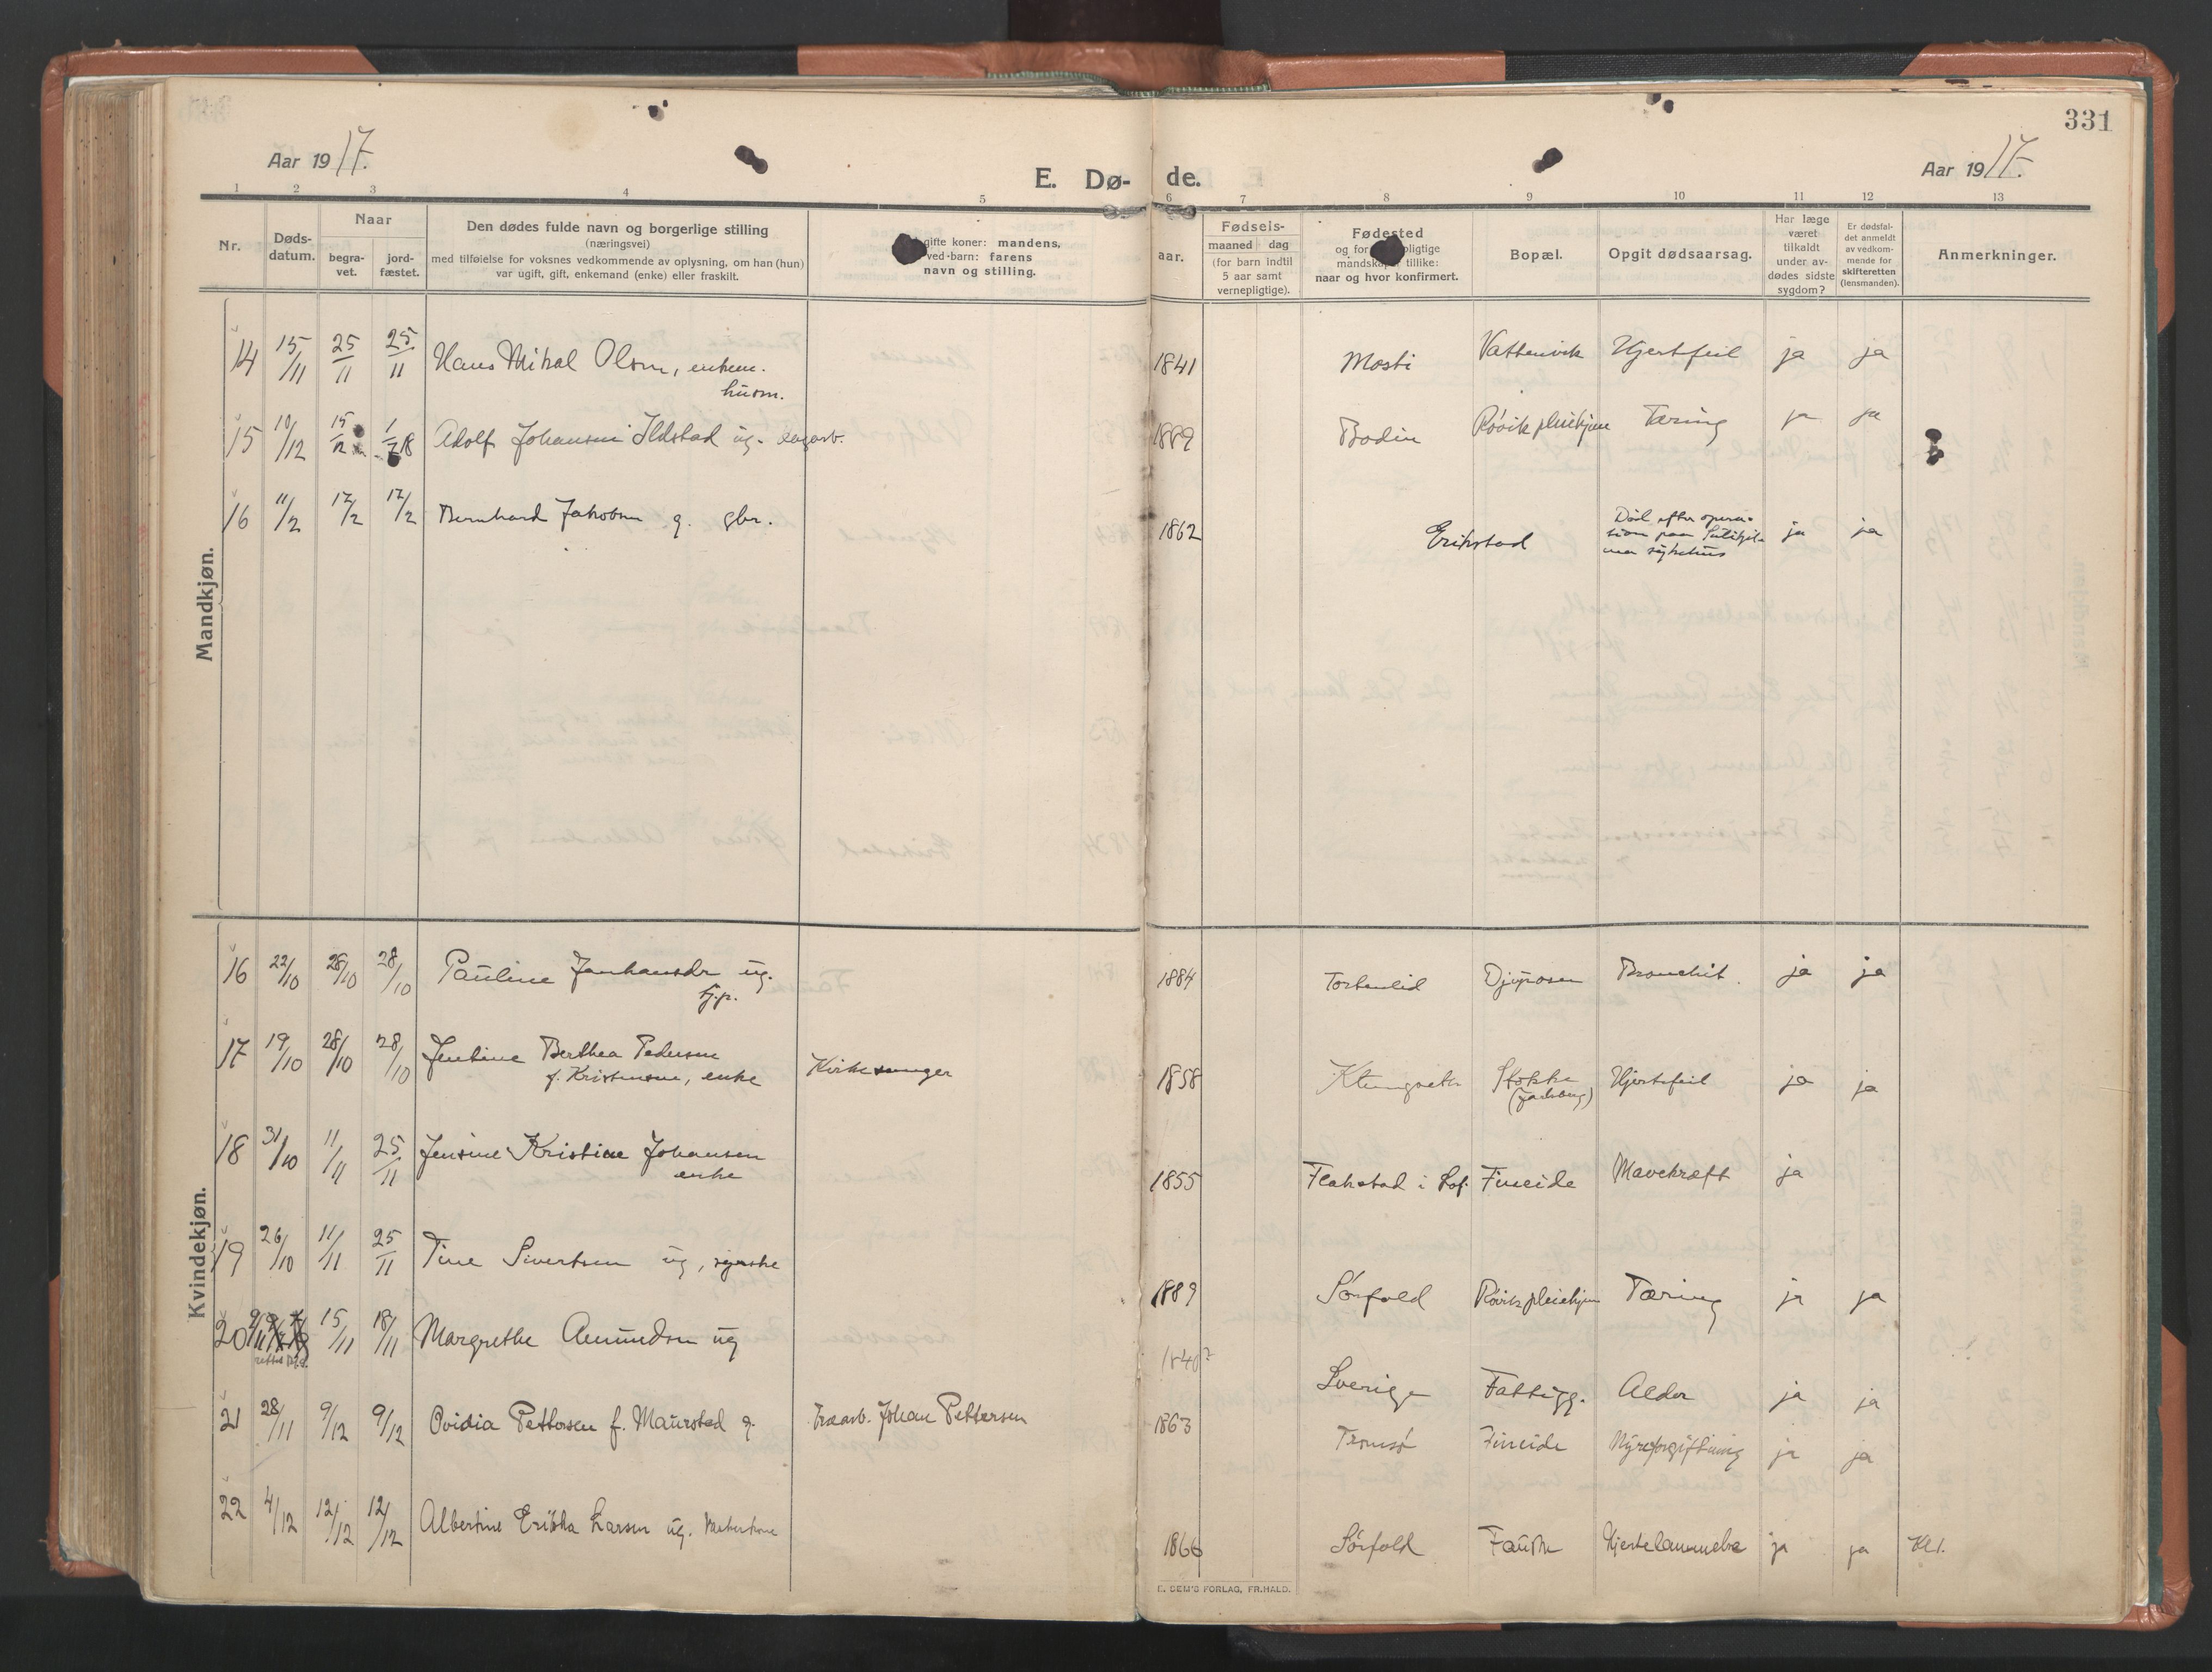 331
Aar 1917.
E. Dø-
de.
Aar 1917.
1 2 3 4 5 6 7 8 9 10 11 12 13
Nr.
Døds-
datum.
Naar
begra-
vet.
jord-
fæstet.
Den dødes fulde navn og borgerlige stilling
(næringsvei)
med tilføielse for voksnes vedkommende av oplysning, om han (hun)
var ugift, gift, enkemand (enke) eller fraskilt.
gifte koner: mandens,
ved barn: farens
navn og stilling.
aar.
Fødsels-
maaned dag
(for barn indtil
5 aar samt
vernepligtige).
Fødested
og for pligtige
mandskaper tillike:
naar og hvor konfirmert.
Bopæl.
Opgit dødsaarsag.
Har læge
været
tilkaldt
under av-
dødes sidste
sygdom?
Er dødsfal-
det anmeldt
av vedkom-
mende for
skifteretten
(lensmanden).
Anmerkninger.
Mandkjøn.
14 15/11 25/11 25/11 Hans Mikal Olsen, enkem. 1841 Mosti Vattenvik Hjertfeil ja ja
husm.
15 10/12 15/12 1/2 18 Adolf Johansen Ildstad ug. 1889 Bodin Røvik pleiehjem Tæring ja ja
16 11/2 17/2 17/2 Bernhard Jakobsen g. gbr. 1862 Erikstad Død efter opera-
sion paa Sulitjel-
ma sykehus ja ja
Kvindekjøn.
16 22/10 28/10 28/10 Pauline ug. 1884 Tortenlid Djupsen Bronchit. ja ja
tj.p.
17 19/10 28/10 28/10 Jentine Berthea Pedersen Kirkesanger 1858 Klungset Stokke Hjertefeil ja ja
f. Kristensen, enke (Jarlsberg)
18 31/10 11/11 25/11 Jensine Kristine Johansen 1855 Flakstad i Lof. Fineide Mavekræft ja
enke
19 26/10 11/11 25/11 Tine Sivertsen ug, syerske 1889 Sørfold Røvik pleiehjem Tæring ja ja
20 9/11 15/11 18/11 Margrethe Amundsen ug 1840? Sverige Fattigg. Alder ja ja
rettet
21 28/11 9/12 9/12 Ovidia Pettersen f. Maurstad g. Johan Pettersen 1863 Tromsø Fineide Nyreforgiftning ja ja
22 4/12 12/12 12/12 Albertine Erikka Larsen ug. Vaskerkone 1866 Sørfold Fauske Hjertelammelse ja ja Kl.
E. SEM'S FORLAG, FR.HALD.